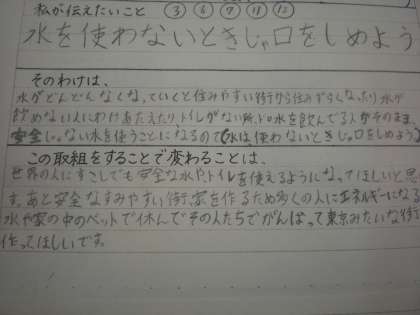 私が伝えたいこと ③ ⑥ ⑦ ⑪ ⑫
水を使わないときじゃ口をしめよう
そのわけは、
水がどんどんなくなっていくと住みやすい街から住みずらくなったり水が
飲めない人にわけあたえたりトイレがない所、ドロ水を飲んでる人がそのまま、
安全じゃない水を使うことになるので(水は使わないときじゃ口をしめよう)
この取組をすることで変わることは、
世界の人にすこしでも安全な水やトイレを使えるようになってほしいと思
す。あと安全なすみやすい街、家を作るため多くの人にエネルギーになる
水や家の中のベットで休んでその人たちでがんばって東京みたいな街
作ってほしいです。